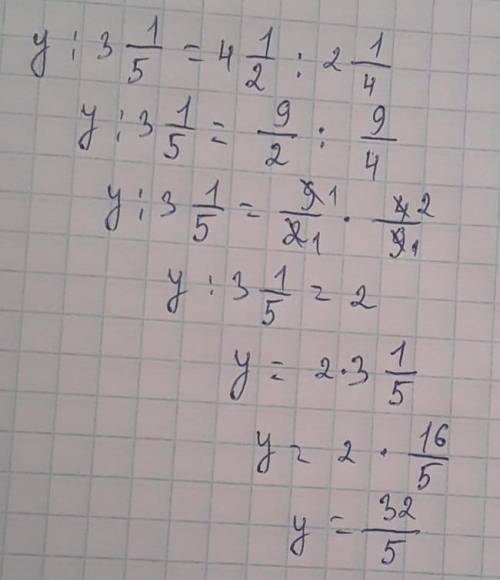 y : 3 1/5 = 4 1/2 : 2 1/4
y : 3 1/5 = 9/2 : 9/4
y : 3 1/5 = 9 1/2 1 · 4 2/9 1
y : 3 1/5 = 2
y = 2 · 3 1/5
y = 2 · 16/5
y = 32/5